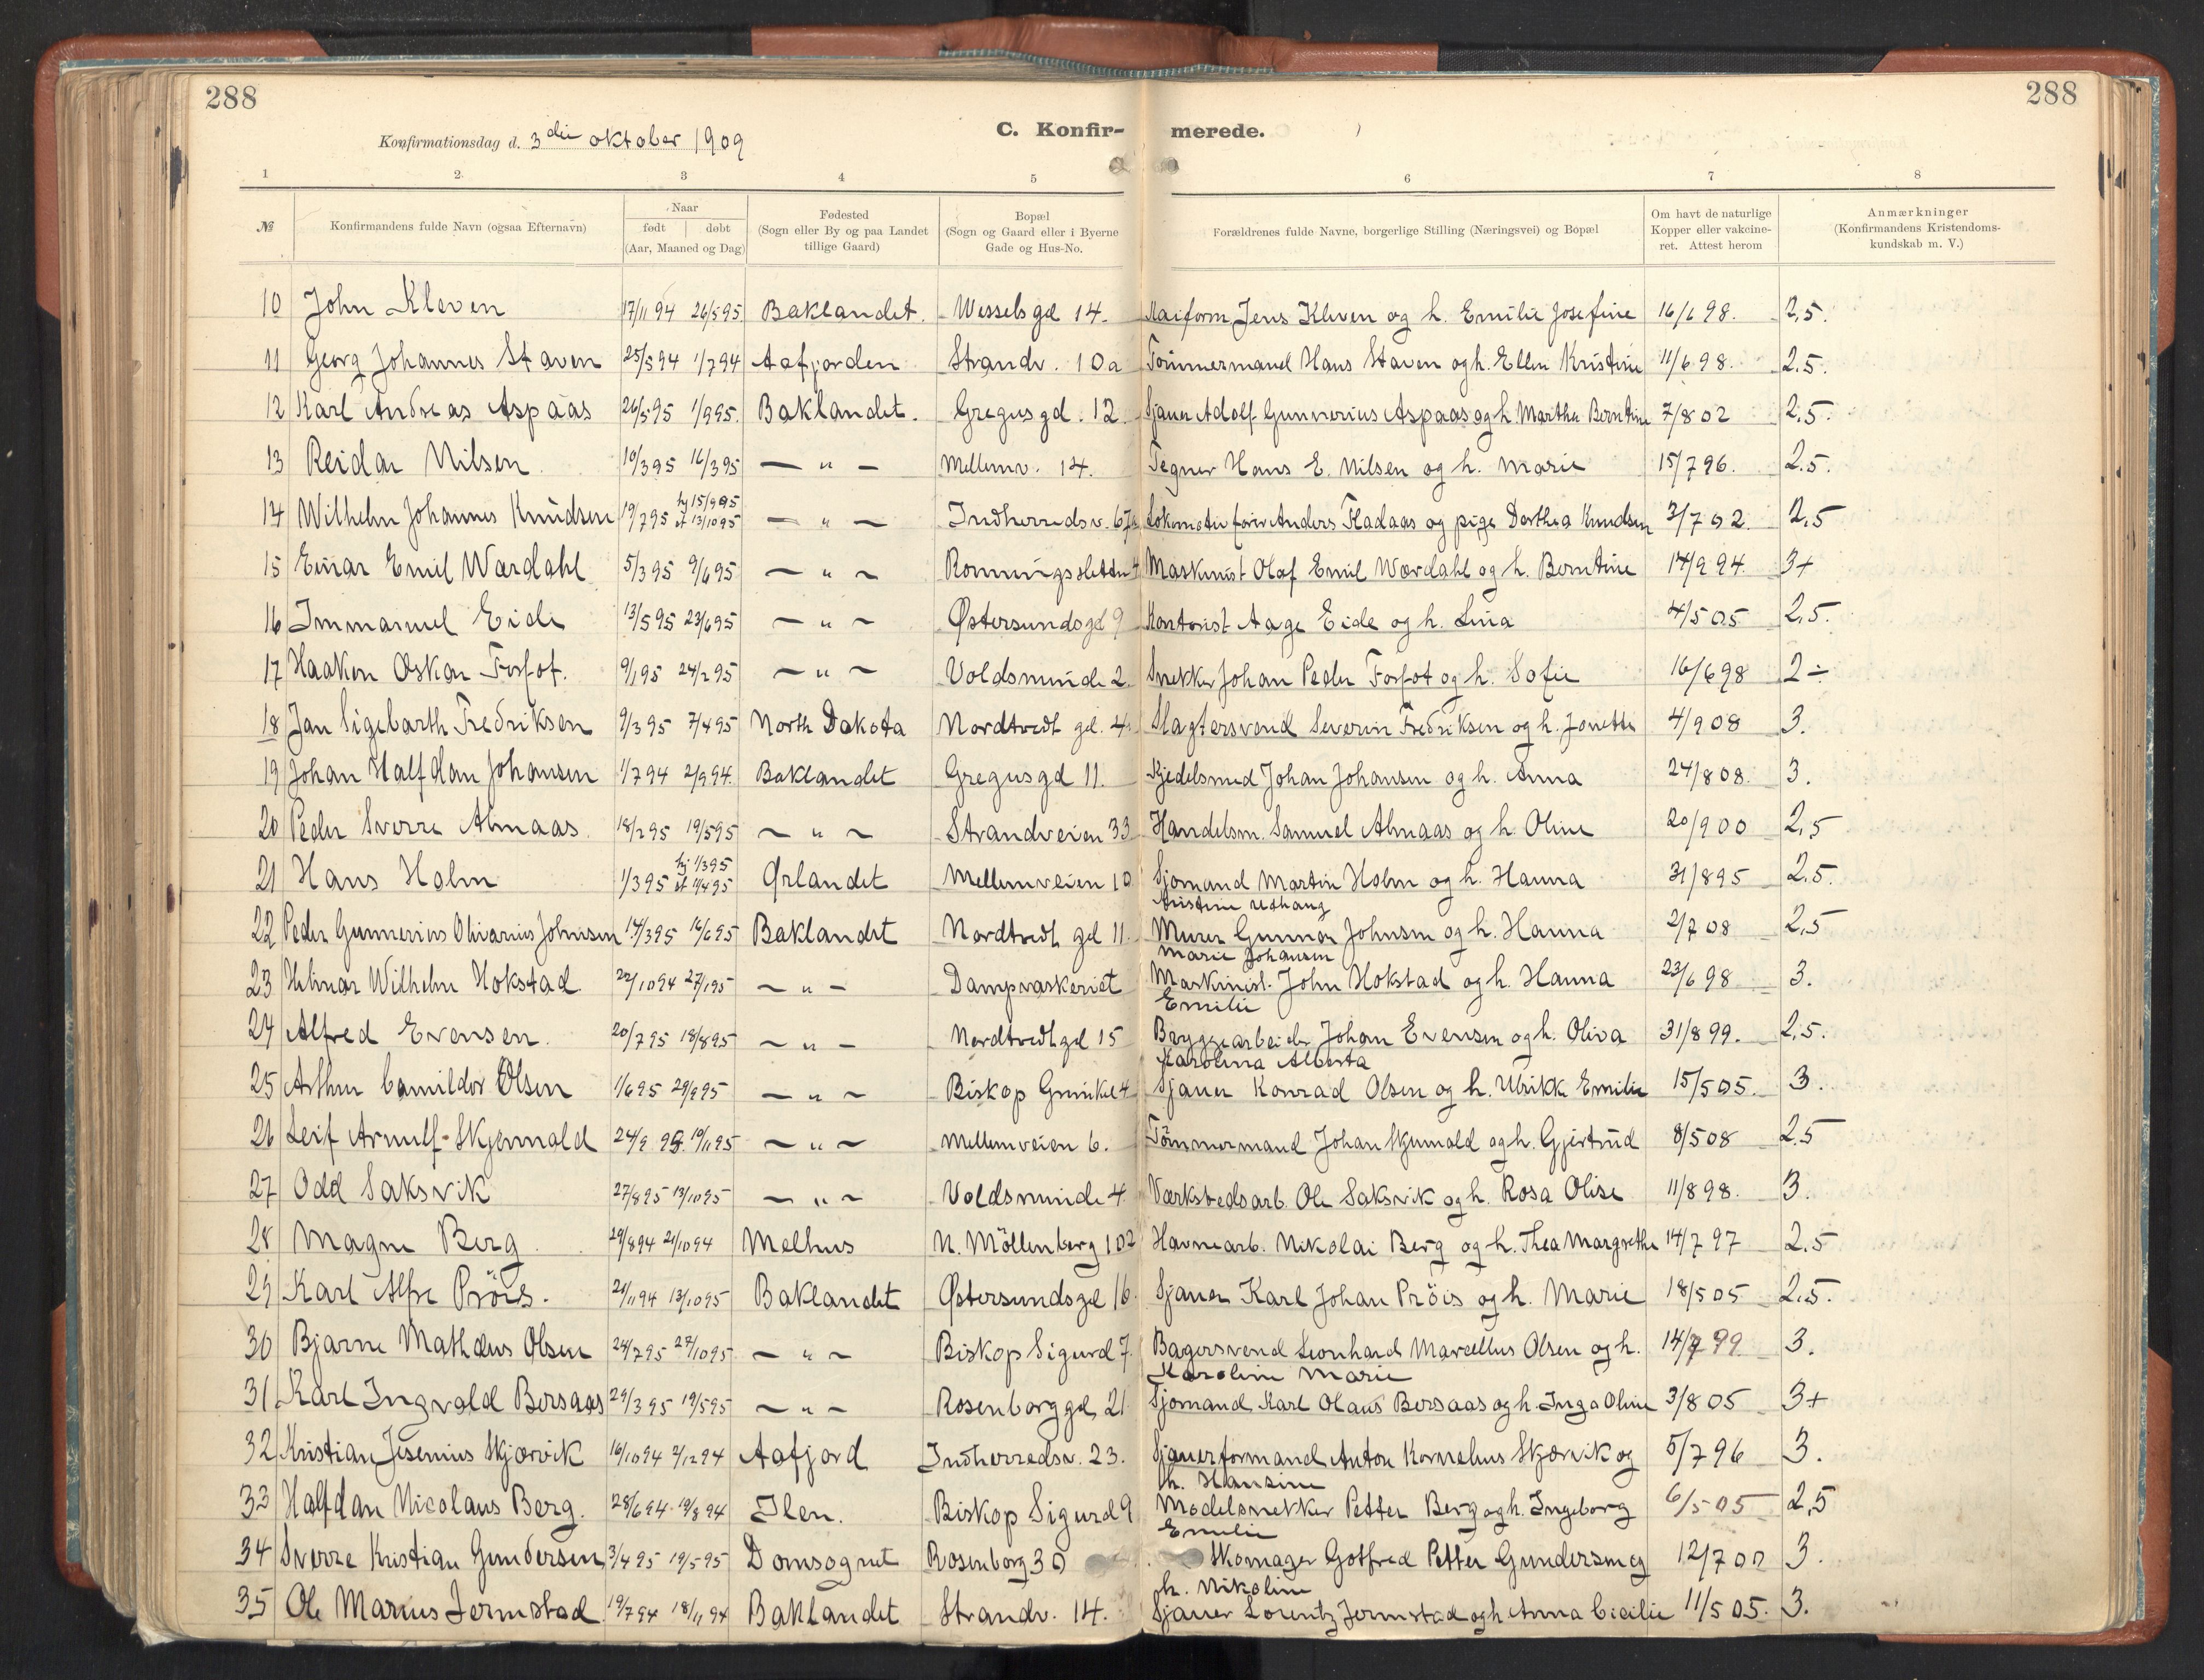 288
288
Konfirmationsdag d. 3die oktober 1909
C. Konfirmerede.
1 2 3 4 5 6 7 8
№ Konfirmandens fulde Navn (ogsaa Efternavn) Naar født døbt (Aar, Maaned og Dag) Fødested (Sogn eller By og paa Landet tillige Gaard) Bopæl (Sogn og Gaard eller i Byerne Gade og Hus-No. Forældrenes fulde Navne, borgerlige Stilling (Næringsvei) og Bopæl Om havt de naturlige Kopper eller vakcineret. Attest herom Anmærkninger (Konfirmandens Kristendomskundskab m. V.)
10 John Kleven 17/11 94 26/5 95. Baklandet. Wesselsgd 14. Kaiform. Jens Kleven og h. Emilie Josefine 16/6 98. 2,5.
11 Georg Johannes Staven 25/5 94 1/7 94 Aafjorden Strandv. 10a Tömmermand Hans Staven og h. Ellen Kristine 11/6 98. 2.5.
12 Karl Andreas Aspaas 26/5 95 1/9 95. Baklandet. Gregusgd. 12. Sjauer Adolf Gunnerius Aspaas og h. Martha Berntine 7/8 02 2.5.
13 Reidar Nilsen 10/3 95 16/3 95 — " — Mellemv. 14. Tegner Hans E. Nilsen og h. Marie 15/7 96. 2.5.
14 Wilhelm Johannes Knudsen 19/7 95 hj 15/9 95 st 13/10 95 — " — Indherredsv. 67a Lokomotivförer Anders Fladaas og pige Dorthea Knudsen 3/7 02. 2,5
15 Einar Emil Wærdahl 5/3 95 9/6 95 — " — Ronningssletten 4 Maskinist Olaf Emil Wærdahl og h. Berntine 14/9 94. 3+
16 Immanuel Eide 13/5 95 23/6 95 — " — Østersundsgd 9 Kontorist Aage Eide og h. Lina 4/5 05 2,5.
17 Haakon Oskar Forfot. 9/1 95 24/2 95 — " — Voldsminde 2. Snekker Johan Peder Forfot og h. Sofie 16/6 98 2÷
18 Jan Sigebarth Fredriksen 9/3 95 7/4 95 North Dakota Nordtvedt gd. 4. Slagtersvend Severin Fredriksen og h. Jonette 4/9 08 3.
19 Johan Halfdan Johansen 1/7 94 2/9 94. Baklandet Gregusgd 11. Kjedelsmed Johan Johansen og h. Anna 24/8 08. 3.
20 Peder Sverre Almaas. 18/2 95 19/5 95 — " — Strandveien 33 Handelsm. Samuel Almaas og h. Oline 20/9 00 2,5
21 Hans Holm 1/3 95 hj 1/3 95 st 11/4 95 Ørlandet Mellemveien 10 Sjömand Martin Holm og h. Hanna
Kristine Udhaug 31/8 95 2.5.
22 Peder Gunnerius Olivarius Johnsen 14/3 95 16/6 95 Baklandet Nordtvedt gd 11. Murer Gunnar Johnsen og h. Hanna
Marie Johansen 2/7 08 2,5
23 Helmar Wilhelm Hokstad. 22/10 94 27/1 95 — " — Dampvaskeriet Maskinist. John Hokstad og h. Hanna
Emilie 23/6 98 3.
24 Alfred Evensen. 20/7 95 18/8 95 — " — Nordtvedtgd 15 Bryggearbeider Johan Evensen og h. Oliva
Karolina Alberta 31/8 99. 2,5.
25 Arthur Camildor Olsen 1/6 95 29/9 95 — " — Biskop Grimkel 4 Sjauer Konrad Olsen og h. Ulrikke Emilie 15/5 05. 3.
26 Leif Arnulf Skjermald 24/9 95. 10/11 95 — " — Mellemveien 6. Tömmermand Johan Skjermald og h. Gjertrud 8/5 08 2.5
27 Odd Saksvik 27/8 95 13/10 95 — " — Voldsminde 4 Værkstedsarb. Ole Saksvik og h. Rosa Olise 11/8 98. 3.
28 Magne Berg. 29/8 94 21/10 94 Melhus N. Möllenberg 102 Havnearb. Nikolai Berg og h. Thea Margrethe 14/7 97 2.5
29 Karl Alfr Pröis. 29/11 94 13/10 95 Baklandet Østersundsgd 16. Sjauer Karl Johan Pröis og h. Marie 18/5 05 2,5.
30 Bjarne Mathæus Olsen 24/7 95 27/10 95 — " — Biskop Sigurd 7. Bagersvend Leonhard Marcellus Olsen og h.
Karoline Marie 14/7 99 3.
31 Karl Ingvald Bersaas 29/3 95 19/5 95 — " — Rosenborggd. 21 Sjömand Karl Olaus Bersaas og h. Inga Oline 3/8 05 3+
32 Kristian Jesenius Skjærvik 16/10 94 2/12 94 Aafjord Indherredsv. 23. Sjauerformand Anton Kornelius Skjærvik og
h. Hansine 5/7 96 3.
33 Halfdan Nicolaus Berg. 28/6 94 19/8 94 Ilen. Biskop Sigurd 9 Modelsnekker Petter Berg og h. Ingeborg
Emilie 6/5 05 2,5
34 Sverre Kristian Gundersen 3/4 95 19/5 95 Domsognet Rosenborg 30 Skomager Gotfred Petter Gundersen og
h. Nikoline 12/7 00 3.
35 Ole Marius Jermstad 19/7 94 18/11 94 Baklandet Strandv. 14. Sjauer Lorentz Jermstad og h Anna Cicilie 11/5 05. 3.